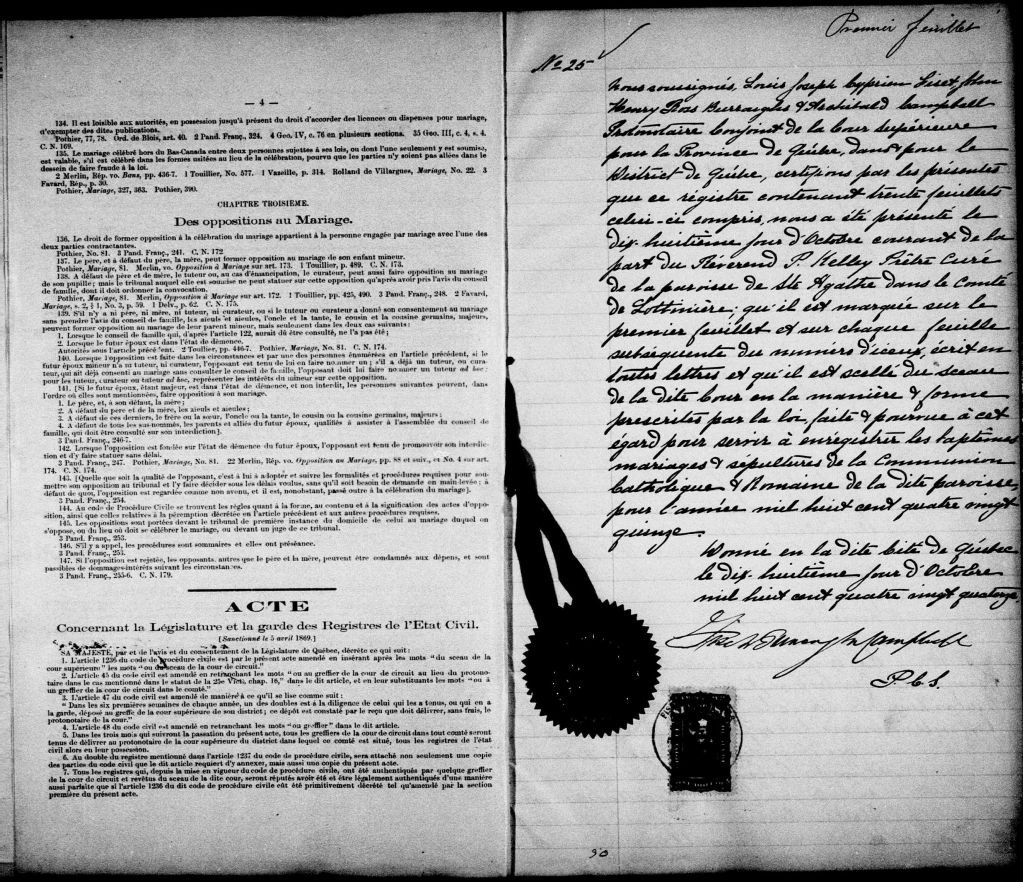 — 4 —
134. Il est loisible aux autorités, en possession jusqu'à présent du droit d'accorder des licences ou dispenses pour mariage,
d'exempter des dites publications.
Pothier, 77, 78. Ord. de Blois, art. 40. 2 Pand. Franç., 224. 4 Geo. IV, c. 76 en plusieurs sections. 35 Geo. III, c. 4, s. 4.
C. N. 169.
135. Le mariage célébré hors du Bas-Canada entre deux personnes sujettes à ses lois, ou dont l'une seulement y est soumise,
est valable, s'il est célébré dans les formes usitées au lieu de la célébration, pourvu que les parties n'y soient pas allées dans le
dessein de faire fraude à la loi.
2 Merlin, Rép. vo. Bans, pp. 436-7. 1 Touillier, No. 577. 1 Vazeille, p. 314. Rolland de Villargues, Mariage, No. 22. 3
Favard, Rép., p. 30.
Pothier, Mariage, 327, 363. Pothier, 390.
CHAPITRE TROISIÈME.
Des oppositions au Mariage.
136. Le droit de former opposition à la célébration du mariage appartient à la personne engagée par mariage avec l'une des
deux parties contractantes.
Pothier, No. 81. 3 Pand. Franç., 241. C. N. 172
137. Le père, et à défaut du père, la mère, peut former opposition au mariage de son enfant mineur.
Pothier, Mariage, 81. Merlin, vo. Opposition à Mariage sur art. 173. 1 Touillier, p. 489. C. N. 173.
138. A défaut de père et de mère, le tuteur, ou, au cas d'émancipation, le curateur, peut aussi faire opposition au mariage
de son pupille; mais le tribunal auquel elle est soumise ne peut statuer sur cette opposition qu'après avoir pris l'avis du conseil
de famille, dont il doit ordonner la convocation.
Pothier, Mariage, 81. Merlin, Opposition à Mariage sur art. 172. 1 Touillier, pp. 425, 490. 3 Pand. Franç., 248. 2 Favard,
Mariage, s. 2, § 1, No. 3, p. 59. 1 Delv., p. 62. C. N. 175.
139. S'il n'y a ni père, ni mère, ni tuteur, ni curateur, ou si le tuteur ou curateur a donné son consentement au mariage
sans prendre l'avis du conseil de famille, les aïeuls et aïeules, l'oncle et la tante, le cousin et la cousine germains, majeurs,
peuvent former opposition au mariage de leur parent mineur, mais seulement dans les deux cas suivants:
1. Lorsque le conseil de famille qui, d'après l'article 122, aurait dû être consulté, ne l'a pas été;
2. Lorsque le futur époux est dans l'état de démence.
Autorités sous l'article précédent. 2 Touillier, pp. 446-7. Pothier, Mariage, No. 81. C. N. 174.
140. Lorsque l'opposition est faite dans les circonstances et par une des personnes énumérées en l'article précédent, si le
futur époux mineur n'a ni tuteur, ni curateur, l'opposant est tenu de lui en faire nommer un; s'il a déjà un tuteur, ou cura-
teur, qui ait déjà consenti au mariage sans consulter le conseil de famille, l'opposant doit lui faire nommer un tuteur ad hoc:
pour les tuteur, curateur ou tuteur ad hoc, représenter les intérêts du mineur sur cette opposition.
141. [Si le futur époux, étant majeur, est dans l'état de démence, et non interdit, les personnes suivantes peuvent, dans
l'ordre où elles sont mentionnées, faire opposition à son mariage.
1. Le père, et, à son défaut, la mère;
2. A défaut du père et de la mère, les aïeuls et aïeules;
3. A défaut de ces derniers, le frère ou la sœur, l'oncle ou la tante, le cousin ou la cousine germains, majeurs;
4. A défaut de tous les sus-nommés, les parents et alliés du futur époux, qualifiés à assister à l'assemblée du conseil de
famille, qui doit être consulté sur son interdiction].
3 Pand. Franç., 246-7.
142. Lorsque l'opposition est fondée sur l'état de démence du futur époux, l'opposant est tenu de promouvoir son interdic-
tion et d'y faire statuer sans délai.
3 Pand. Franç., 247. Pothier, Mariage, No. 81. 22 Merlin, Rép. vo. Opposition au Mariage, pp. 88 et suiv., et No. 4 sur art.
174. C. N. 174.
143. [Quelle que soit la qualité de l'opposant, c'est à lui à adopter et suivre les formalités et procédures requises pour sou-
mettre son opposition au tribunal et l'y faire décider sous les délais voulus, sans qu'il soit besoin de demande en main-levée; à
défaut de quoi, l'opposition est regardée comme non avenue, et il est, nonobstant, passé outre à la célébration du mariage].
3 Pand. Franç., 254.
144. Au code de Procédure Civile se trouvent les règles quant à la forme, au contenu et à la signification des actes d'oppo-
sition, ainsi que celles relatives à la péremption décrétée en l'article précédent et aux autres procédures requises.
145. Les oppositions sont portées devant le tribunal de première instance du domicile de celui au mariage duquel on
s'oppose, ou du lieu où doit se célébrer le mariage, ou devant un juge de ce tribunal.
3 Pand. Franç., 253.
146. S'il y a appel, les procédures sont sommaires et elles ont préséance.
3 Pand. Franç., 253.
147. Si l'opposition est rejetée, les opposants autres que le père et la mère, peuvent être condamnés aux dépens, et sont
passibles de dommages-intérêts suivant les circonstances.
3 Pand. Franç., 255-6. C. N. 179.
ACTE
Concernant la Législature et la garde des Registres de l'Etat Civil.
[Sanctionné le 5 avril 1869.]
SA MAJESTÉ, par et de l'avis et du consentement de la Législature de Québec, décrète ce qui suit:
1. L'article 1236 du code de procédure civile est par le présent acte amendé en insérant après les mots "du sceau de la
cour supérieure" les mots "ou du sceau de la cour de circuit."
2. L'article 45 du code civil est amendé en retranchant les mots "ou au greffier de la cour de circuit au lieu du protono-
taire dans le cas mentionné dans le statut de la 25e Vict., chap. 16," dans le dit article, et en leur substituants les mots "ou à
un greffier de la cour de circuit dans le comté."
3. L'article 47 du code civil est amendé de manière à ce qu'il se lise comme suit:
"Dans les six premières semaines de chaque année, un des doubles est à la diligence de celui qui les a tenus, ou qui en a
la garde, déposé au greffe de la cour supérieure de son district; ce dépôt est constaté par le reçu que doit délivrer, sans frais, le
protonotaire de la cour."
4. L'article 48 du code civil est amendé en retranchant les mots "ou greffier" dans le dit article.
5. Dans les trois mois qui suivront la passation du présent acte, tous les greffiers de la cour de circuit dans tout comté seront
tenus de délivrer au protonotaire de la cour supérieure du district dans lequel ce comté est situé, tous les registres de l'état
civil alors en leur possession.
6. Au double du registre mentionné dans l'article 1237 du code de procédure civile, sera attaché non seulement une copie
des parties du code civil que le dit article requiert d'y annexer, mais aussi une copie du présent acte.
7. Tous les registres qui, depuis la mise en vigueur du code de procédure civile, ont été authentiqués par quelque greffier
de la cour de circuit et revêtus du sceau de la dite cour, seront réputés avoir été et être légalement authentiqués d'une manière
aussi parfaite que si l'article 1236 du dit code de procédure civile eût été primitivement décrété tel qu'amendé par la section
première du présent acte.
Premier feuillet
No 25
Nous soussignés, Louis Joseph Cyprien Fiset, John
Henry Ross Burroughs & Archibald Campbell
Protonotaire Conjoint de la Cour Supérieure
pour la Province de Québec, dans & pour le
District de Québec, certifions par les présentes
que ce régistre contenant trente feuillets
celui-ci compris, nous a été présenté le
dix-huitième jour d'Octobre courant de la
part du Révérend P. Kelly Prêtre Curé
de la paroisse de Ste Agathe dans le Comté
de Lotbinière; qu'il est marqué sur le
premier feuillet et sur chaque feuille
subséquente du numéro d'iceux, écrit en
toutes lettres et qu'il est scellé du sceau
de la dite Cour en la manière & forme
prescrites par la loi, faite & pourvue à cet
égard pour servir à enregistrer les baptêmes
mariages & sépultures de la Communion
Catholique & Romaine de la dite paroisse,
pour l'année mil huit cent quatre vingt
quinze.
Donné en la dite Cité de Québec
le dix-huitième jour d'Octobre
mil huit cent quatre vingt quatorze.
Fiset Burroughs Campbell
P. C. S.
30